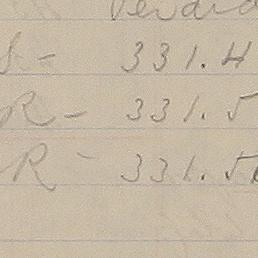 S - 331.4
R - 331.5
R - 331.5